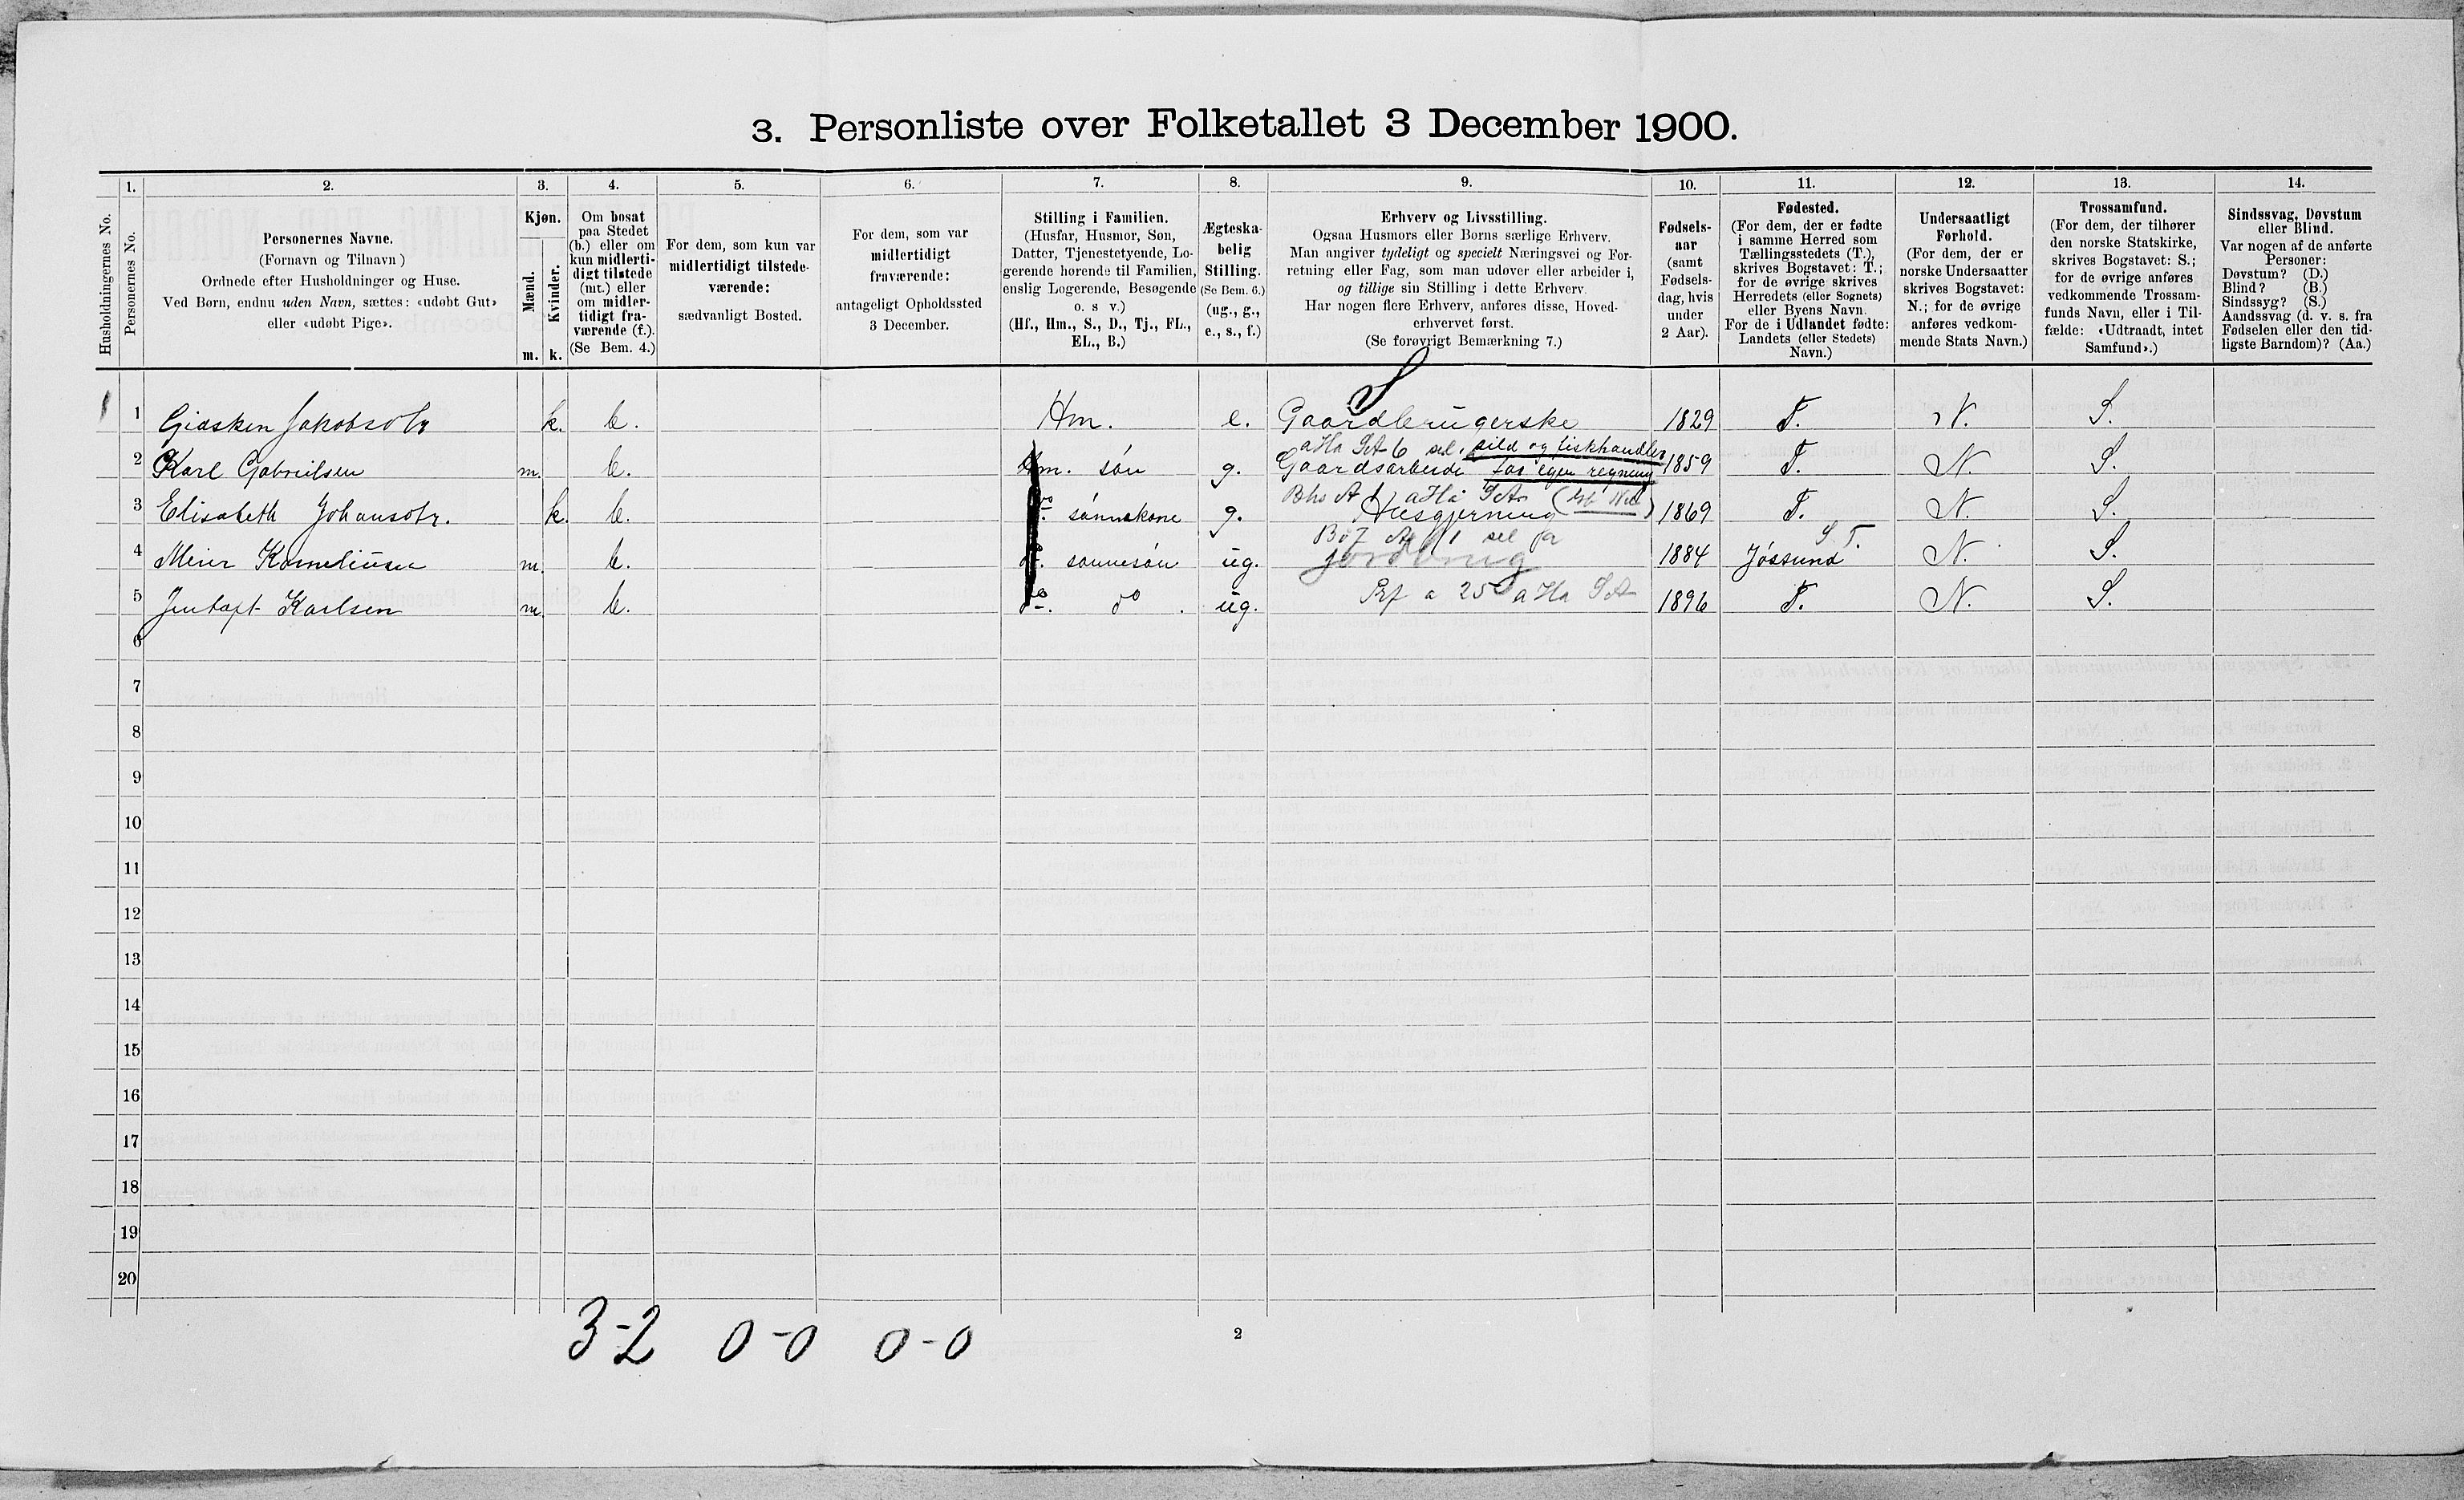 3. Personliste over Folketallet 3 December 1900.
Husholdningernes No.
1.
Personernes No.
2.
Personernes Navne.
(Fornavn og Tilnavn)
Ordnede efter Husholdninger og Huse.
Ved Børn, endnu uden Navn, sættes: «udøbt Gut»
eller «udøbt Pige».
3.
Kjøn.
Mænd.
Kvinder.
m. k.
4.
Om bosat
paa Stedet
(b.) eller om
kun midlerti-
digt tilstede
(mt.) eller
om midler-
tidigt fra-
værende (f.).
(Se Bem. 4.)
5.
For dem, som kun var
midlertidigt tilstede-
værende:
sædvanligt Bosted.
6.
For dem, som var
midlertidigt
fraværende:
antageligt Opholdssted
3 December.
7.
Stilling i Familien.
(Husfar, Husmor, Søn,
Datter, Tjenestetyende, Lo-
gerende hørende til Familien,
enslig Logerende, Besøgende
o. s v.)
(Hf., Hm., S., D., Tj., FL.,
EL., B.)
8.
Ægteska-
belig
Stilling.
(Se Bem. 6.)
(ug., g.,
e., s., f.)
9.
Erhverv og Livsstilling.
Ogsaa Husmors eller Børns særlige Erhverv.
Man angiver tydeligt og specielt Næringsvei og For-
retning eller Fag, som man udøver eller arbeider i,
og tillige sin Stilling i dette Erhverv.
Har nogen flere Erhverv, anføres disse, Hoved-
erhvervet først.
(Se forøvrigt Bemærkning 7.)
10.
Fødsels-
aar
(samt
Fødsels-
dag, hvis
under
2 Aar).
11.
Fødested.
(For dem, der er fødte
i samme Herred som
Tællingsstedets (T.),
skrives Bogstavet: T.;
for de øvrige skrives
Herredets (eller Sognets)
eller Byens Navn.
For de i Udlandet fødte:
Landets (eller Stedets)
Navn.)
12.
Undersaatligt
Forhold.
(For dem, der er
norske Undersaatter
skrives Bogstavet:
N.; for de øvrige
anføres vedkom-
mende Stats Navn.)
13.
Trossamfund.
(For dem, der tilhører
den norske Statskirke,
skrives Bogstavet: S.;
for de øvrige anføres
vedkommende Trossam-
funds Navn, eller i Til-
fælde: «Udtraadt, intet
Samfund».)
14.
Sindssvag, Døvstum
eller Blind.
Var nogen af de anførte
Personer:
Døvstum? (D.)
Blind? (B.)
Sindssyg? (S.)
Aandssvag (d. v. s. fra
Fødselen eller den tid-
ligste Barndom)? (Aa.)
S
1 Gidsken Jakobsdtr k. b. Hm. e. Gaardbrugerske 1829 T. N. S.
sild og fiskhandler
2 Karl Gabrielsen m. b. søn g. Gaardsarbeide for egen regning 1859 T. N. S.
3 Elisabeth Johansdtr. k. b. sønnekone g. Husgjerning 1869 T. N. S.
S. T.
4 Meier Korneliusen m. b. sønnesøn ug. jordbrug 1884 Jössund N. S.
5 Jentoft Karlsen m. b. do. do. ug. 1896 T. N. S.
6
7
8
9
10
11
12
13
14
15
16
17
18
19
20
3-2 0-0 0-0
2